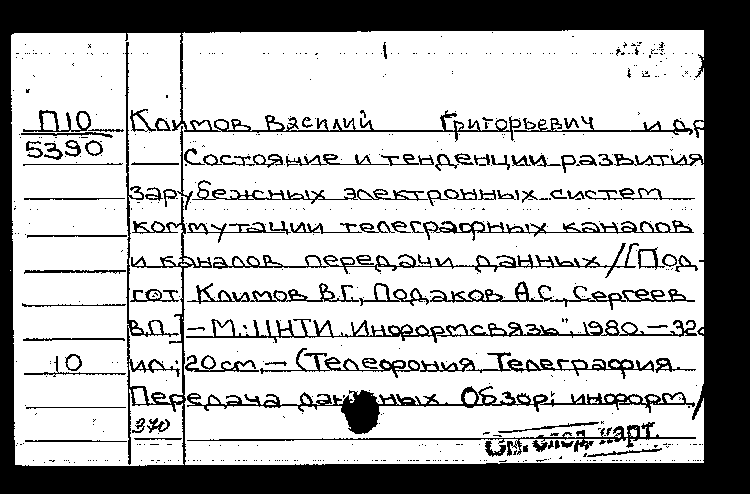 П10 Климов Василий Григорьевич и др
5390 Состояние и тенденции развития
зарубежных электронных систем
коммутации телеграфных каналов
и каналов передачи данных/[Под-
гот. Климов В.Г., Подаков А.С., Сергеев
В.П.] – М.: ЦНТИ „Информсвязь", 1980. – 32с
10 ил.; 20см. – (Телефония. Телеграфия.
Передача данных. Обзор. информ./
370
См. след. карт.